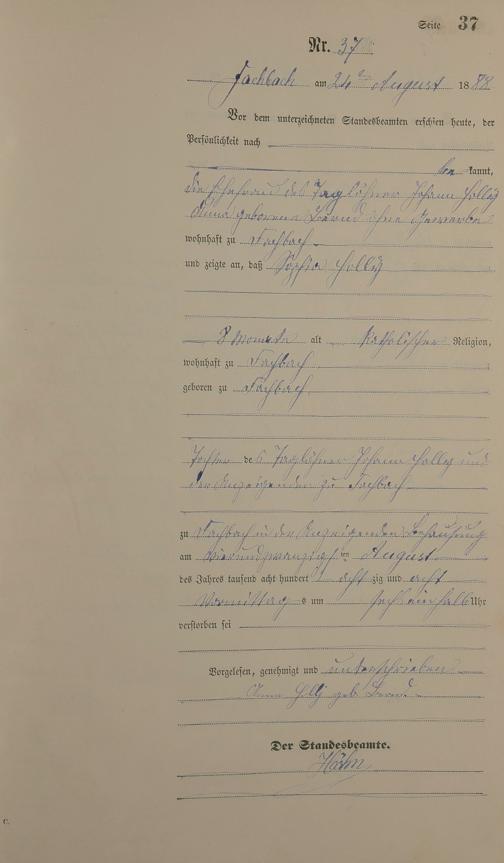 Seite 37
Nr. 37
Fachbach am 24ten August 1888
Vor dem unterzeichneten Standesbeamten erschien heute, der
Persönlichkeit nach
be kannt,
die Ehefrau des Taglöhner Johann Holly
Anna geborene Bernd ohne Gewerbe
wohnhaft zu Fachbach
und zeigte an, daß Sophia Holly
8 Monate alt katholischer Religion,
wohnhaft zu Fachbach
geboren zu Fachbach
Tochter des Taglöhner Johann Holly und
der Anzeigenden zu Fachbach
zu Fachbach in der Anzeigenden Behausung
am vierundzwanzigsten August
des Jahres tausend acht hundert acht zig und acht
Vormittags um sechseinhalb Uhr
verstorben sei
Vorgelesen, genehmigt und unterschrieben
Anna Holly geb. Bernd
Der Standesbeamte.
C.